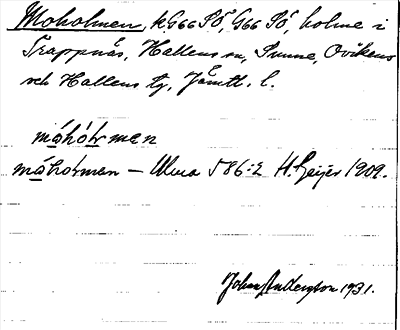 Moholmen, k. G66 SÖ, G66 SÖ, holme i
Trappnäs, Hallens sn, Sunne, Ovikens
och Hallens tg, Jämtl. l.
måhórmen
måhormen – Ulma 586:2 H. Geijer 1909.
John Anderzon 1931.